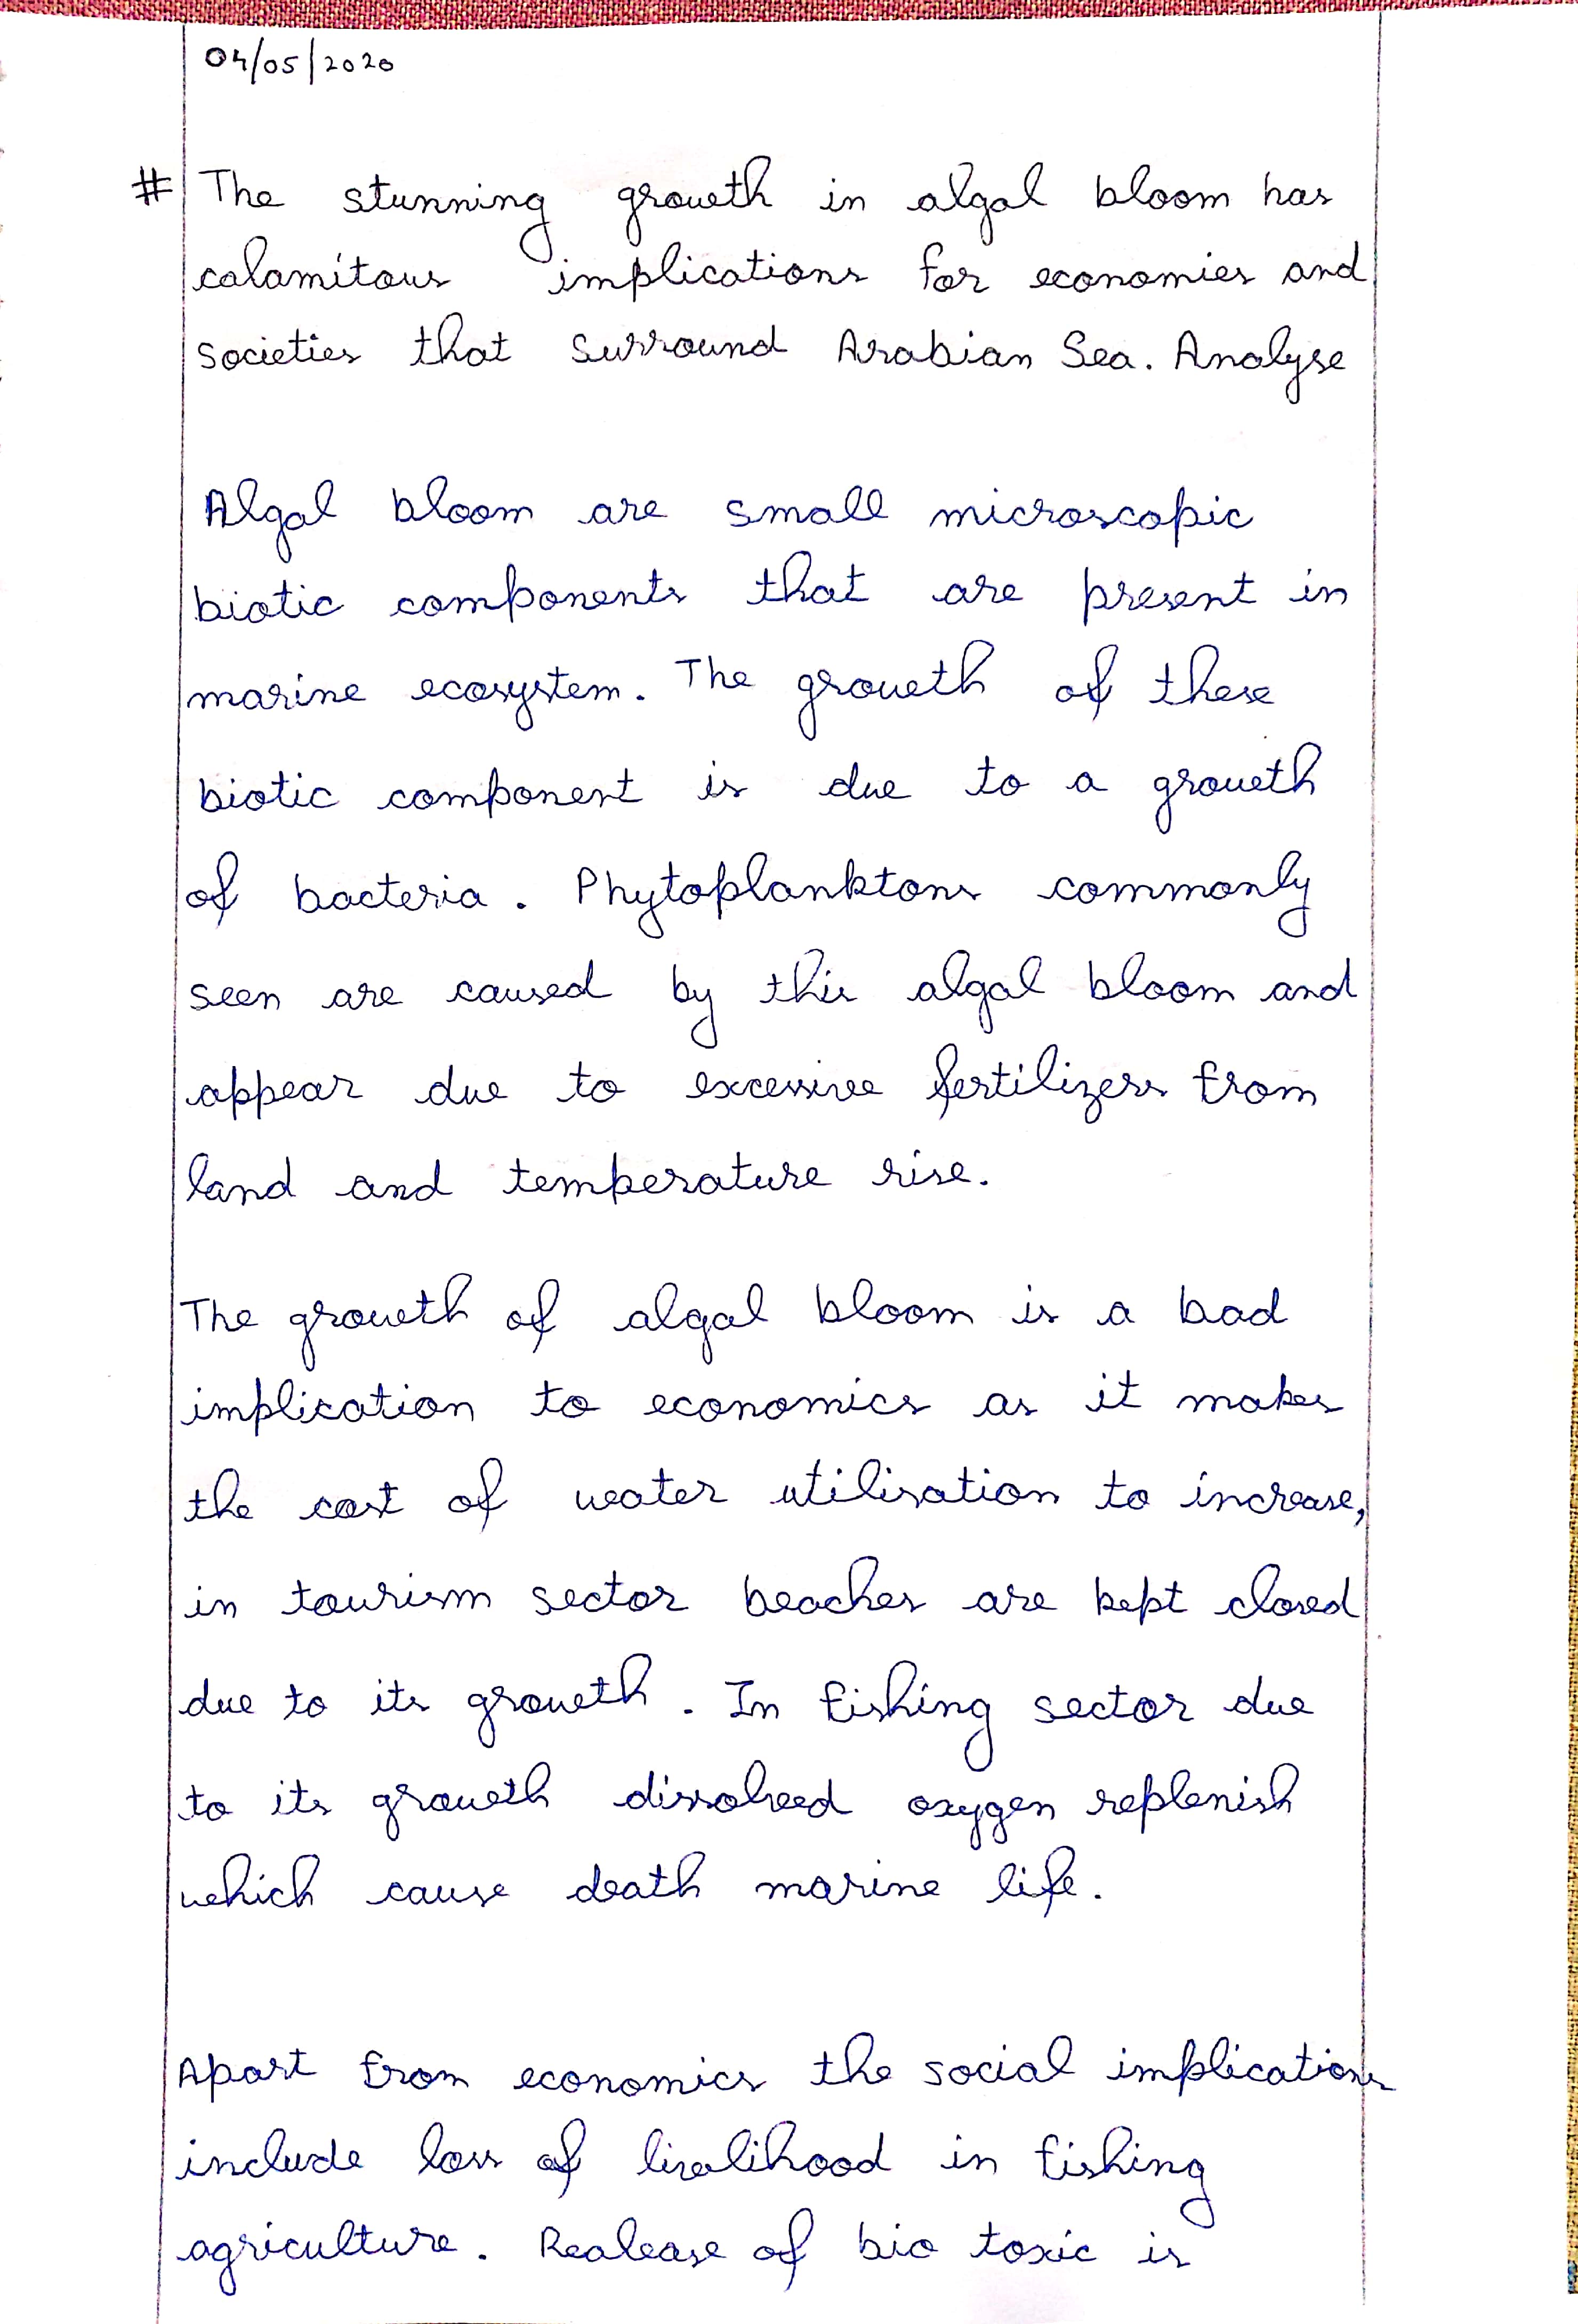 04/05/2020
# The stunning growth in algal bloom has
calamitous implications for economies and
societies that surround Arabian Sea. Analyse
Algal bloom are small microscopic
biotic components that are present in
marine ecosystem. The growth of these
biotic component is due to a growth
of bacteria. Phytoplanktons commonly
seen are caused by this algal bloom and
appear due to excessive fertilizers from
land and temperature rise.
The growth of algal bloom is a bad
implication to economics as it makes
the cost of water utilisation to increase,
in tourism sector beaches are kept closed
due to its growth. In fishing sector due
to its growth dissolved oxygen replenish
which cause death marine life.
Apart from economics the social implications
include loss of livelihood in fishing
agriculture. Realease of bio toxic is